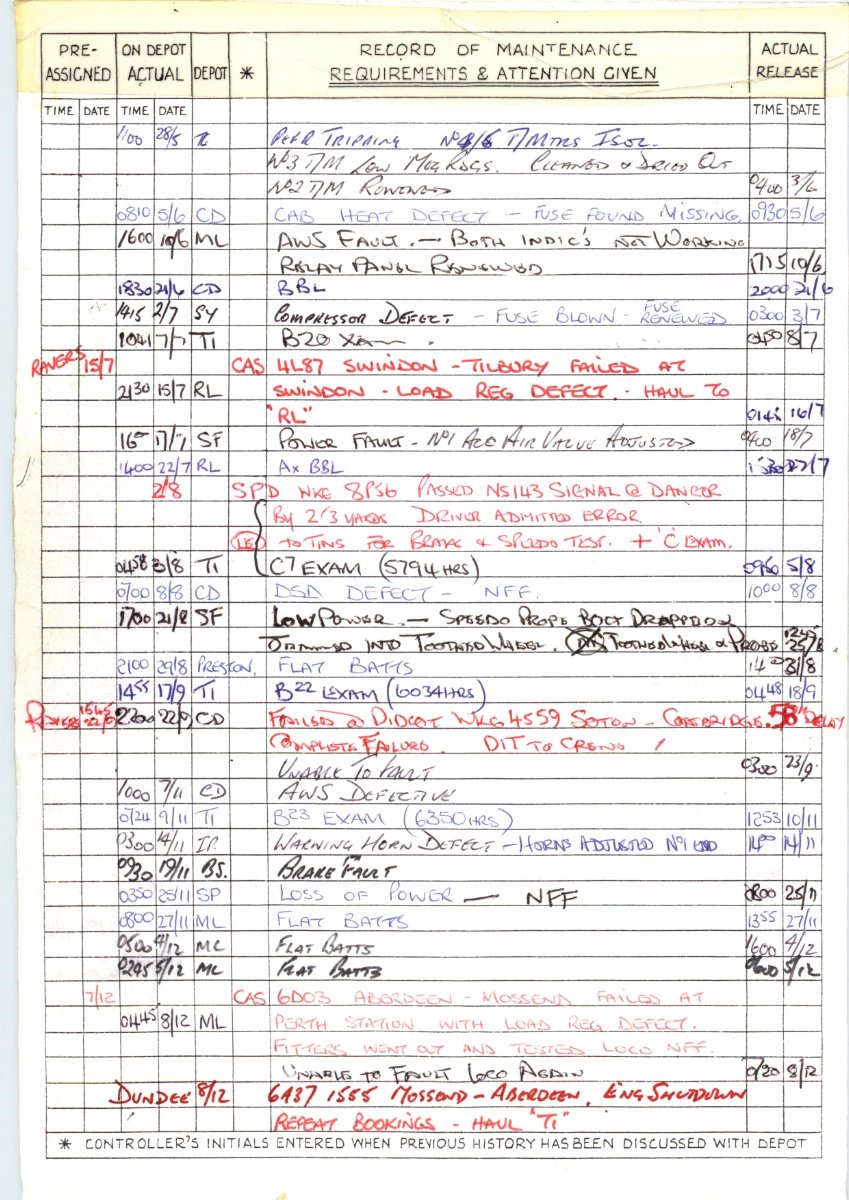 PRE- ON DEPOT RECORD OF MAINTENANCE ACTUAL
ASSIGNED ACTUAL DEPOT * REQUIREMENTS & ATTENTION GIVEN RELEASE
TIME DATE TIME DATE TIME DATE
1100 28/5 PEAR TRIPPING T/MTRS ISOL.
Nº3 T/M LOW MEG RDGS. CLEANED & DRIED OUT
Nº2 T/M RENEWED 0400 3/6
0810 5/6 CD CAB HEAT DEFECT - FUSE FOUND MISSING. 0930 5/6
1600 10/6 ML AWS FAULT. - BOTH INDIC'S NOT WORKING
RELAY PANEL RENEWED 1715 10/6
1830 21/6 CD BBL 2000 21/6
1415 2/7 SY COMPRESSOR DEFECT - FUSE BLOWN - FUSE RENEWED 0300 3/7
1041 7/7 TI B20 8/7
15/7 CAS 4L87 SWINDON - TILBURY FAILED AT
2130 15/7 RL SWINDON - LOAD REG DEFECT. - HAUL TO
"RL" 16/7
17/7 SF POWER FAULT - Nº1 AIR VALVE ADJUSTED 0400 18/7
1400 22/7 RL AX BBL
2/8 SPD WKG 8P56 PASSED NS143 SIGNAL @ DANGER
BY 2/3 YARDS DRIVER ADMITTED ERROR.
LE TO TINS FOR BRAKE & SPEEDO TEST. + 'C' EXAM.
0458 3/8 TI C7 EXAM (5794 HRS) 5/8
0700 8/8 CD DSD DEFECT - NFF. 1000 8/8
1700 21/8 SF LOW POWER. - SPEEDO PROBE BOLT DROPPED ON
JAMMED INTO TOOTHED WHEEL. TOOTHED WHEEL & PROBE 1245 25/8
2100 29/8 PRESTON. FLAT BATTS 31/8
1455 17/9 TI B22 EXAM (6034 HRS) 0448 18/9
1645 22/9 2200 22/9 CD FAILED @ DIDCOT WKG 4S59 SOTON - COATBRIDGE. 58" DELAY
COMPLETE FAILURE. DIT TO CREWE
UNABLE TO FAULT 0300 23/9
1000 7/11 CD AWS DEFECTIVE
0724 9/11 TI B23 EXAM (6350 HRS) 1253 10/11
0300 14/11 IP. WARNING HORN DEFECT - HORNS ADJUSTED Nº1 END 1400 14/11
0930 19/11 BS. BRAKE FAULT
0350 25/11 SP LOSS OF POWER - NFF 0800 25/11
0800 27/11 ML FLAT BATTS 1355 27/11
0500 4/12 ML FLAT BATTS 1600 4/12
0245 5/12 ML FLAT BATTS 0600 5/12
7/12 CAS 6D03 ABERDEEN - MOSSEND FAILED AT
0445 8/12 ML PERTH STATION WITH LOAD REG DEFECT.
FITTERS WENT OUT AND TESTED LOCO NFF.
UNABLE TO FAULT LOCO AGAIN 0720 8/12
DUNDEE 8/12 6A37 1555 MOSSEND - ABERDEEN. ENG SHUTDOWN
REPEAT BOOKINGS - HAUL "TI"
* CONTROLLER'S INITIALS ENTERED WHEN PREVIOUS HISTORY HAS BEEN DISCUSSED WITH DEPOT